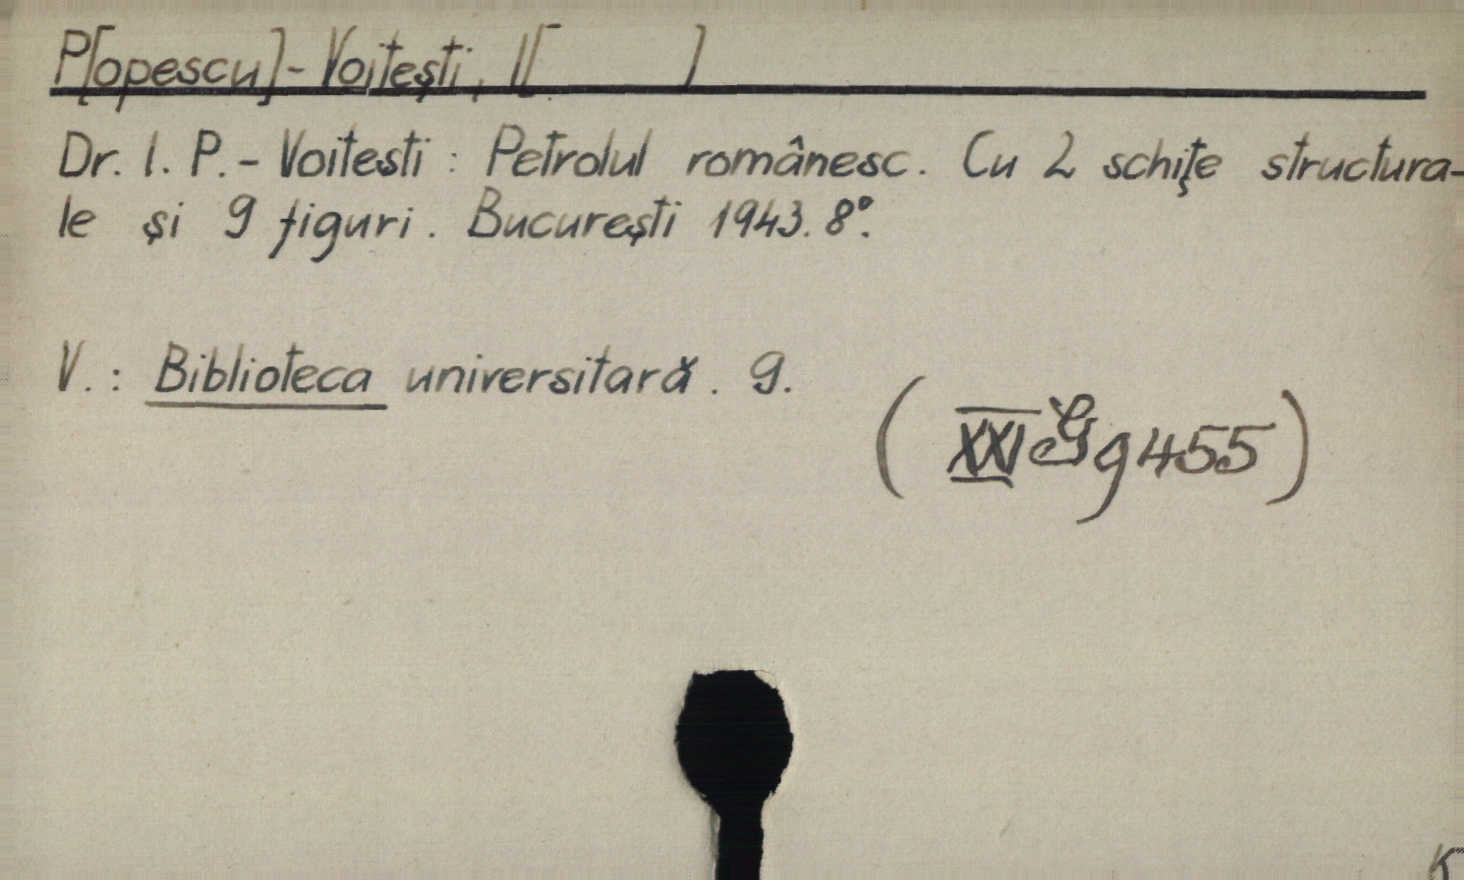 P[opescu]-Voiteşti, I[ ]
Dr. I. P.-Voitesti: Petrolul românesc. Cu 2 schiţe structura-
le şi 9 figuri. Bucureşti 1943. 8°.
V.: Biblioteca universitară. 9.
(XXI Gg 455)